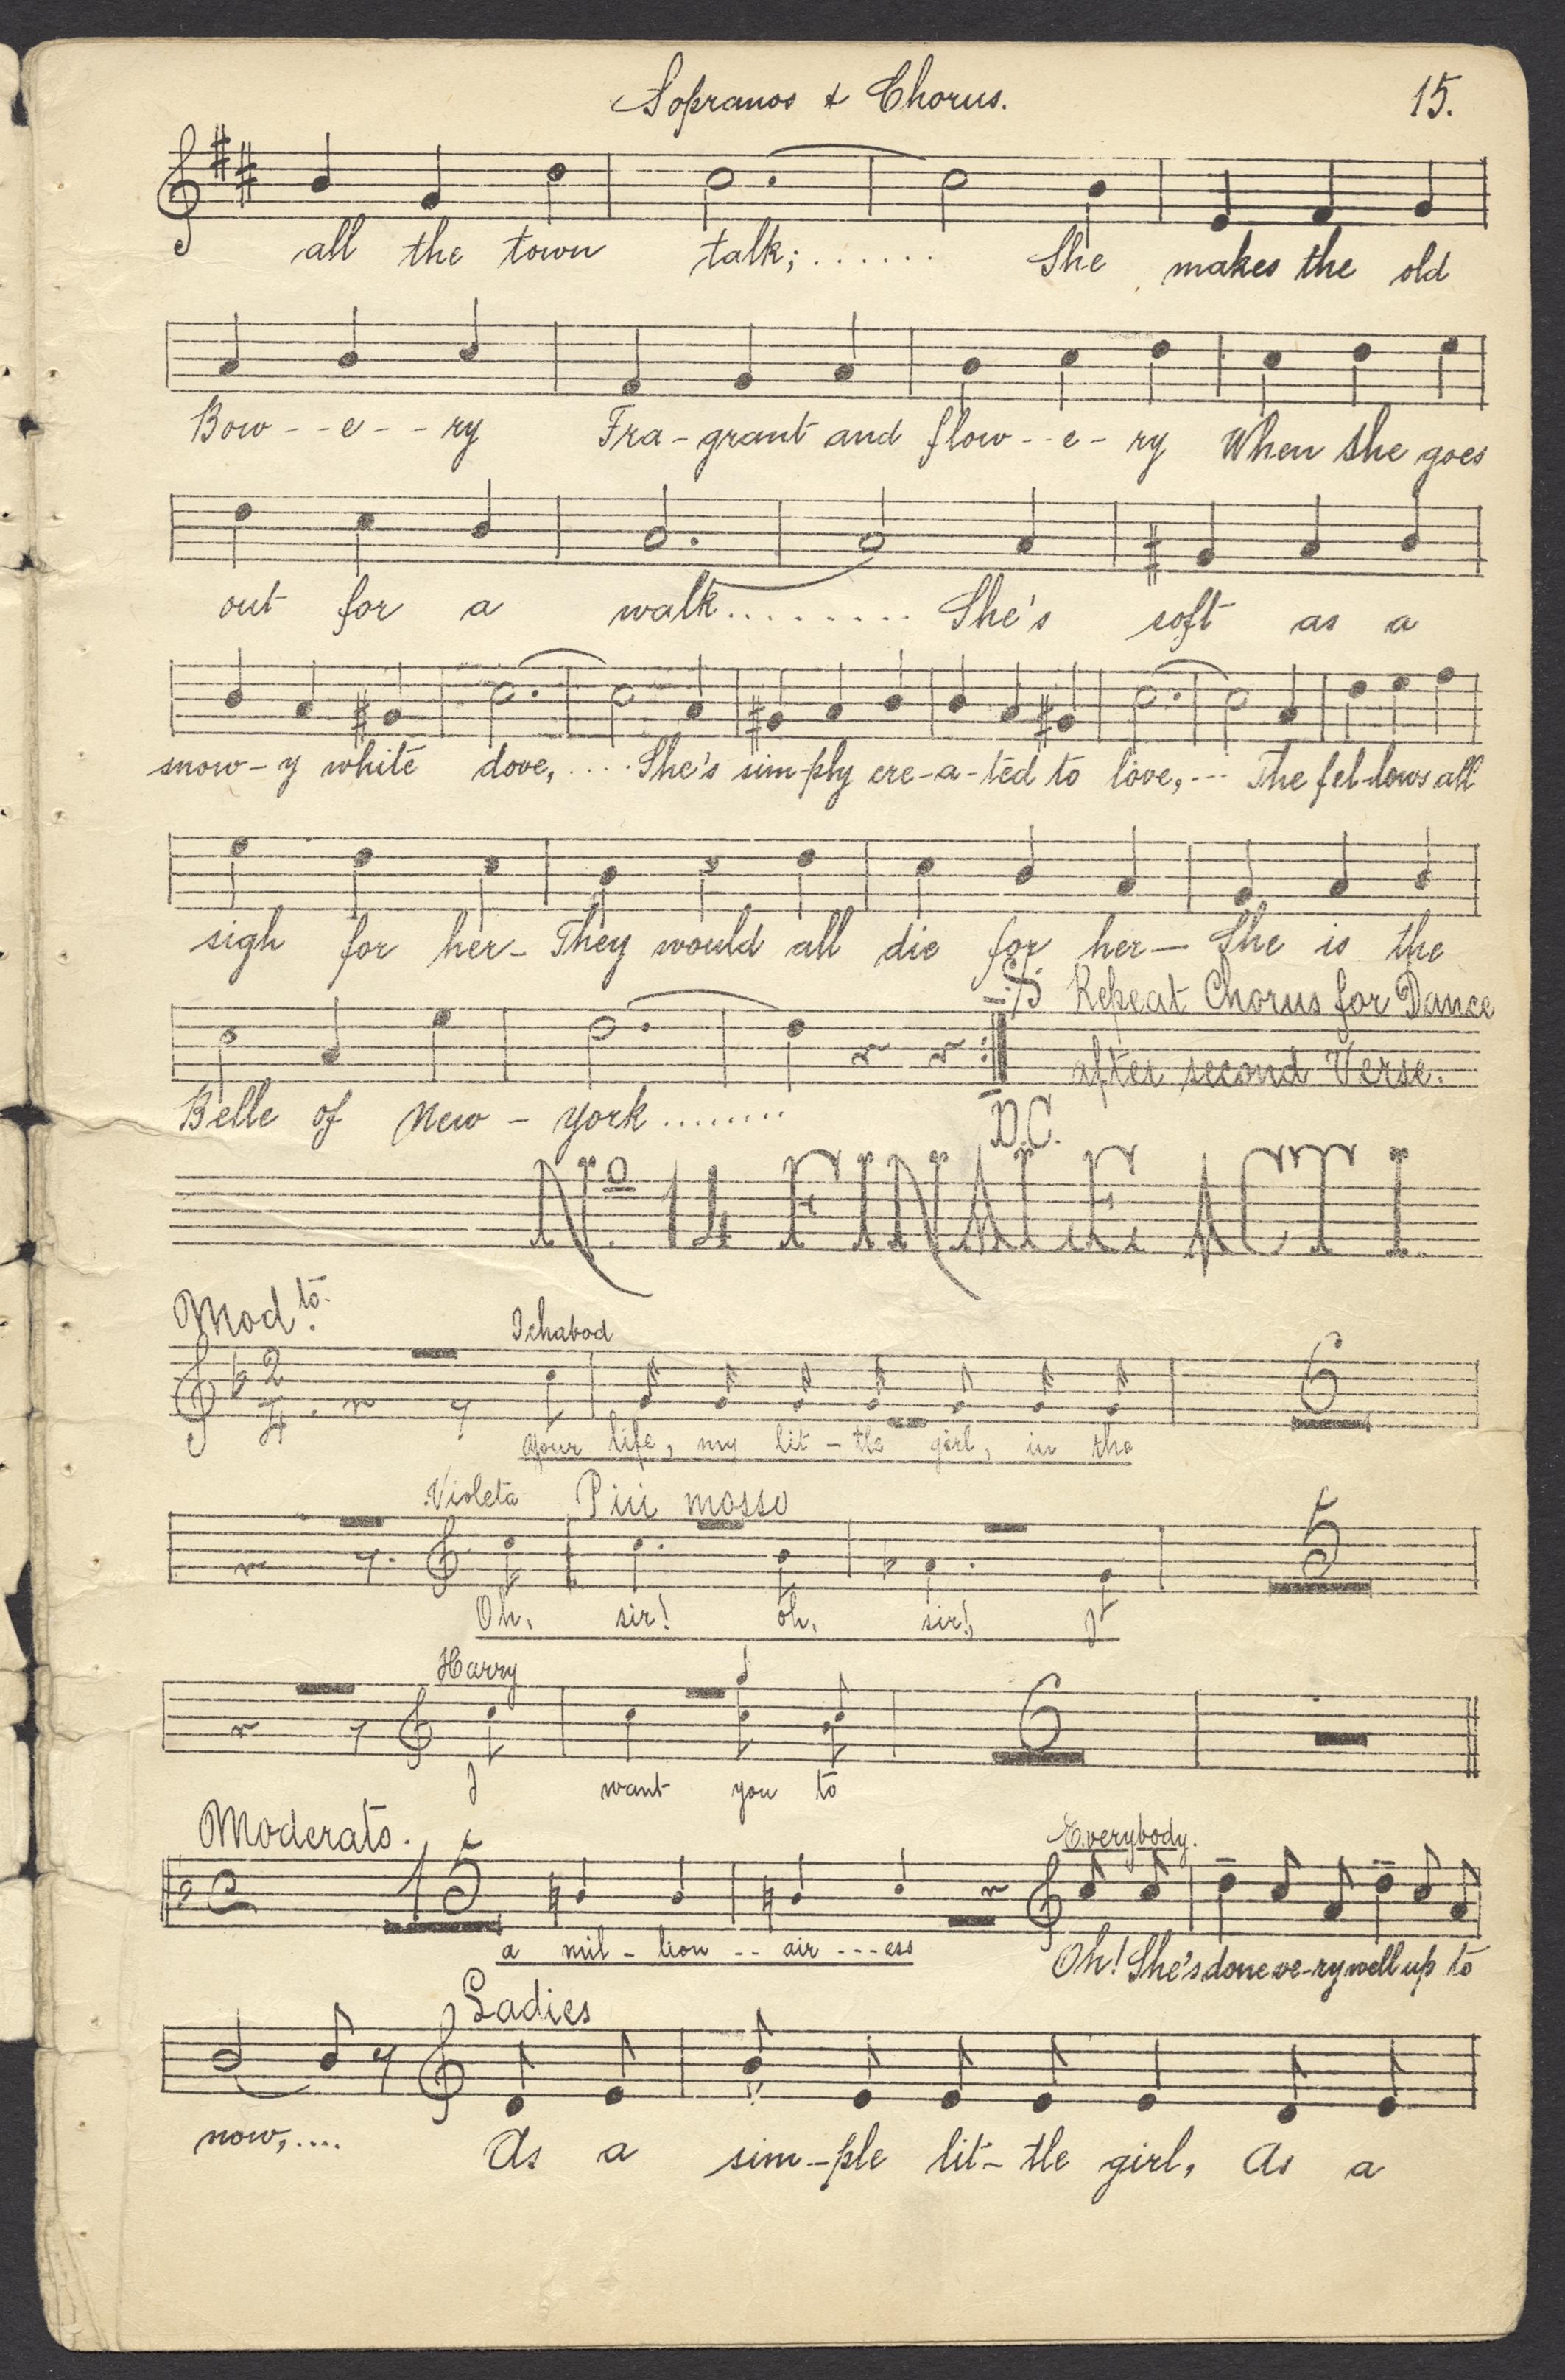 Sopranos & Chorus. 15.
all the town talk; ....... She makes the old
Bow - - e - - ry Fra - grant and flow - - e - ry When she goes
out for a walk......... She's soft as a
snow - y white dove, ..... She's sim - ply cre - a - ted to love, --- The fel - lows all
sigh for her - They would all die for her — She is the
Repeat Chorus for Dance
after second Verse.
Belle of New - York ........ D.C.
No. 14 FINALE ACT I.
Modto.
Ichabod
2/4 6
your life, my lit - tle girl, in the
Violeta Più mosso
5
Oh, sir! oh, sir! I
Harry
6
I want you to
Moderato. Everybody.
15
a mil - lion - - air - - - ess Oh! She's done ve - ry well up to
Ladies
now, .... As a sim - ple lit - tle girl, As a